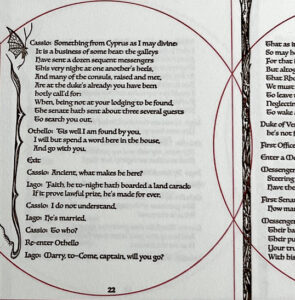 Cassio: Something from Cyprus as I may divine:
It is a business of some heat: the galleys
Have sent a dozen sequent messengers
This very night at one another's heels,
And many of the consuls, raised and met,
Are at the duke's already: you have been
hotly call'd for;
When, being not at your lodging to be found,
The senate hath sent about three several guests
To search you out.
Othello: 'Tis well I am found by you,
I will but spend a word here in the house,
And go with you.
Exit
Cassio: Ancient, what makes he here?
Iago: 'Faith, he to-night hath boarded a land carack:
If it prove lawful prize, he's made for ever.
Cassio: I do not understand.
Iago: He's married.
Cassio: To who?
Re-enter Othello
Iago: Marry, to—Come, captain, will you go?
22
That as i
So may he
For that i
But altog
That Rho
We must
To leave t
Neglectin
To wake a
Duke of Ve
he's not f
First Offic
Enter a Me
Messenger
Steering
Have the
First Sena
How man
Messenger
Their ba
Their pu
Your tru
With his